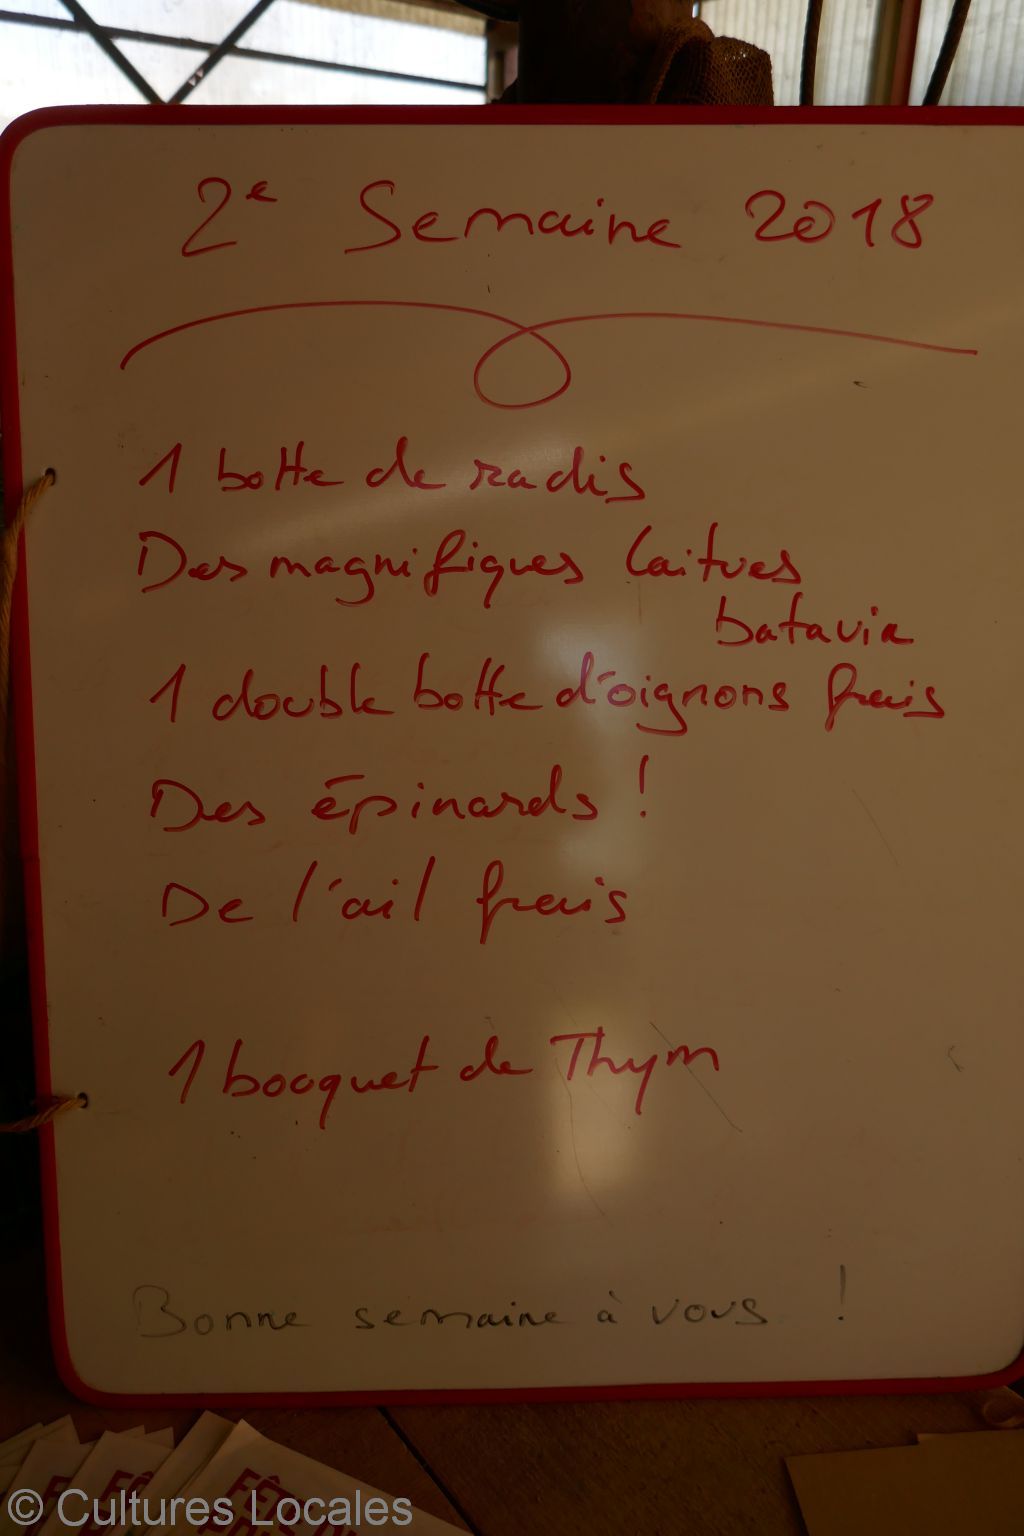 2e Semaine 2018
1 botte de radis
Des magnifiques laitues
batavia
1 double botte d'oignons frais
Des épinards !
De l'ail frais
1 bouquet de Thym
Bonne semaine à vous !
© Cultures Locales
FÊTE